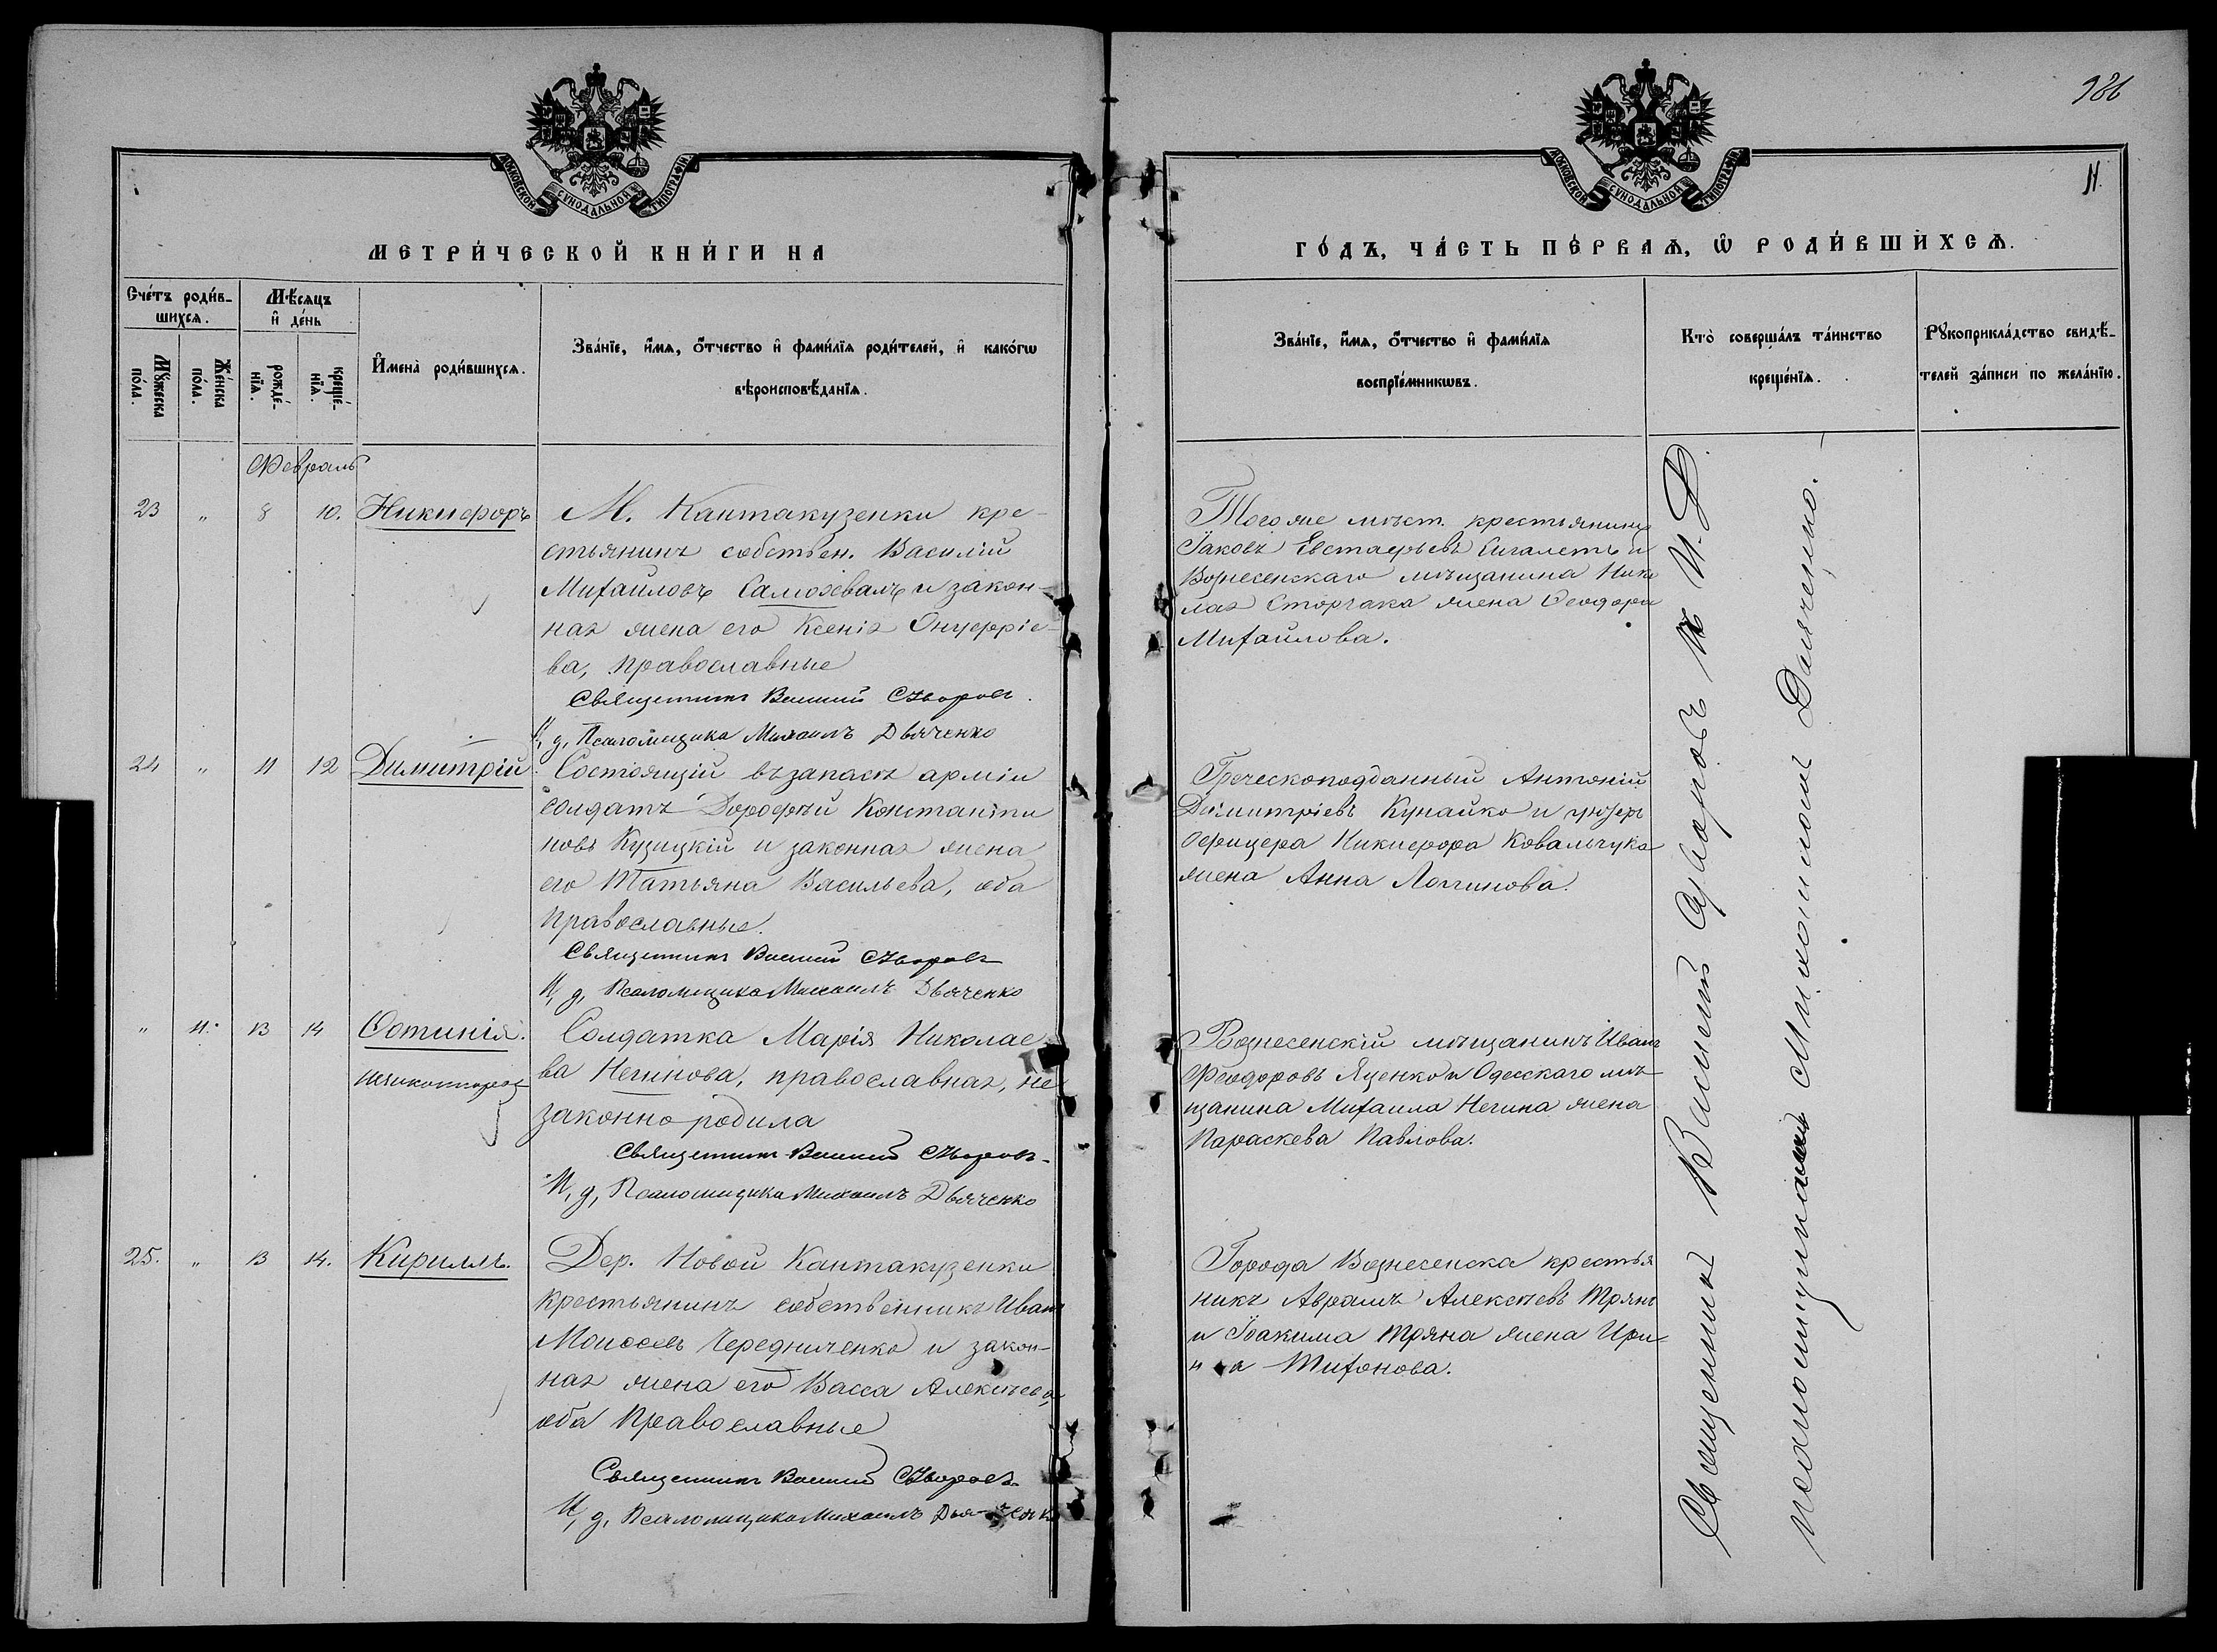 986
11.
МОСКОВСКОЙ СѴНОДАЛЬНОЙ ТИПОГРАФІИ
МЕТРИ́ЧЕСКОЙ КНИ́ГИ НА
Сче́тъ роди́в-
шихсѧ.
Мѣ́сѧцъ
и҆ де́нь
Мꙋ́жеска
по́ла.
Же́нска
по́ла.
рожде́-
нїѧ.
креще́-
нїѧ.
И҆мена̀ роди́вшихсѧ.
Зва́нїе, и҆́мѧ, ѻ҆́тчество и҆ фами́лїѧ роди́телей, и҆ како́гѡ
вѣроисповѣ́данїѧ.
Февраль
23 " 8 10. Никифоръ
М. Кантакузенки кре-
стьянинъ собствен. Василій
Михайловъ и закон-
ная жена его Ксенія Онуфріе-
ва, православные
Священникъ Василій
И, д, Псаломщика Михаилъ Дьяченко
24 " 11 12 Димитрій
Состоящій въ запасѣ арміи
солдатъ Дорофѣй Константи
новъ Кузицкій и законная жена
его Татьяна Васильева, оба
православные.
Священникъ Василій
И, д, Псаломщика Михаилъ Дьяченко
" 11. 13 14 Фотинія.
незаконнорож
Солдатка Марія Николае
ва Негинова, православная, не
законно родила
Священникъ Василій
И, д, Псаломщика Михаилъ Дьяченко
25. " 13 14. Кириллъ.
Дер. Новой Кантакузенки
крестьянинъ собственникъ Иванъ
Моисеевъ Чередниченко и закон-
ная жена его Васса Алексѣева,
оба православные
Священникъ Василій
И, д, Псаломщика Михаилъ Дьяченко
МОСКОВСКОЙ СѴНОДАЛЬНОЙ ТИПОГРАФІИ
ГО́ДЪ, ЧА́СТЬ ПЕ́РВАѦ, Ѡ҆ РОДИ́ВШИХСѦ.
Зва́нїе, и҆́мѧ, ѻ҆́тчество и҆ фами́лїѧ
воспрїе́мникѡвъ.
Кто̀ соверша́лъ та́инство
креще́нїѧ.
Рꙋкоприкла́дство свидѣ́-
телей за́писи по жела́нїю.
Того же мѣст. крестьянинъ
Іаковъ Евстафьевъ и
Вознесенскаго мѣщанина Нико
лая Сторчака жена Феодора
Михайлова.
Греческоподданный Антоній
Димитріевъ Кунайко и унтеръ
офицера Никифора Ковальчука
жена Анна Логгинова.
Вознесенскій мѣщанинъ Иванъ
Феодоровъ Яценко и Одесскаго мѣ
щанина Михаила Негина жена
Параскева Павлова.
Города Вознесенска крестья
никъ Авраамъ Алексѣевъ Трянъ
и Іоакима Тряна жена Ири-
на Тихонова.
Священникъ Василій и И. Д.
псаломщика Михаилъ Дьяченко.